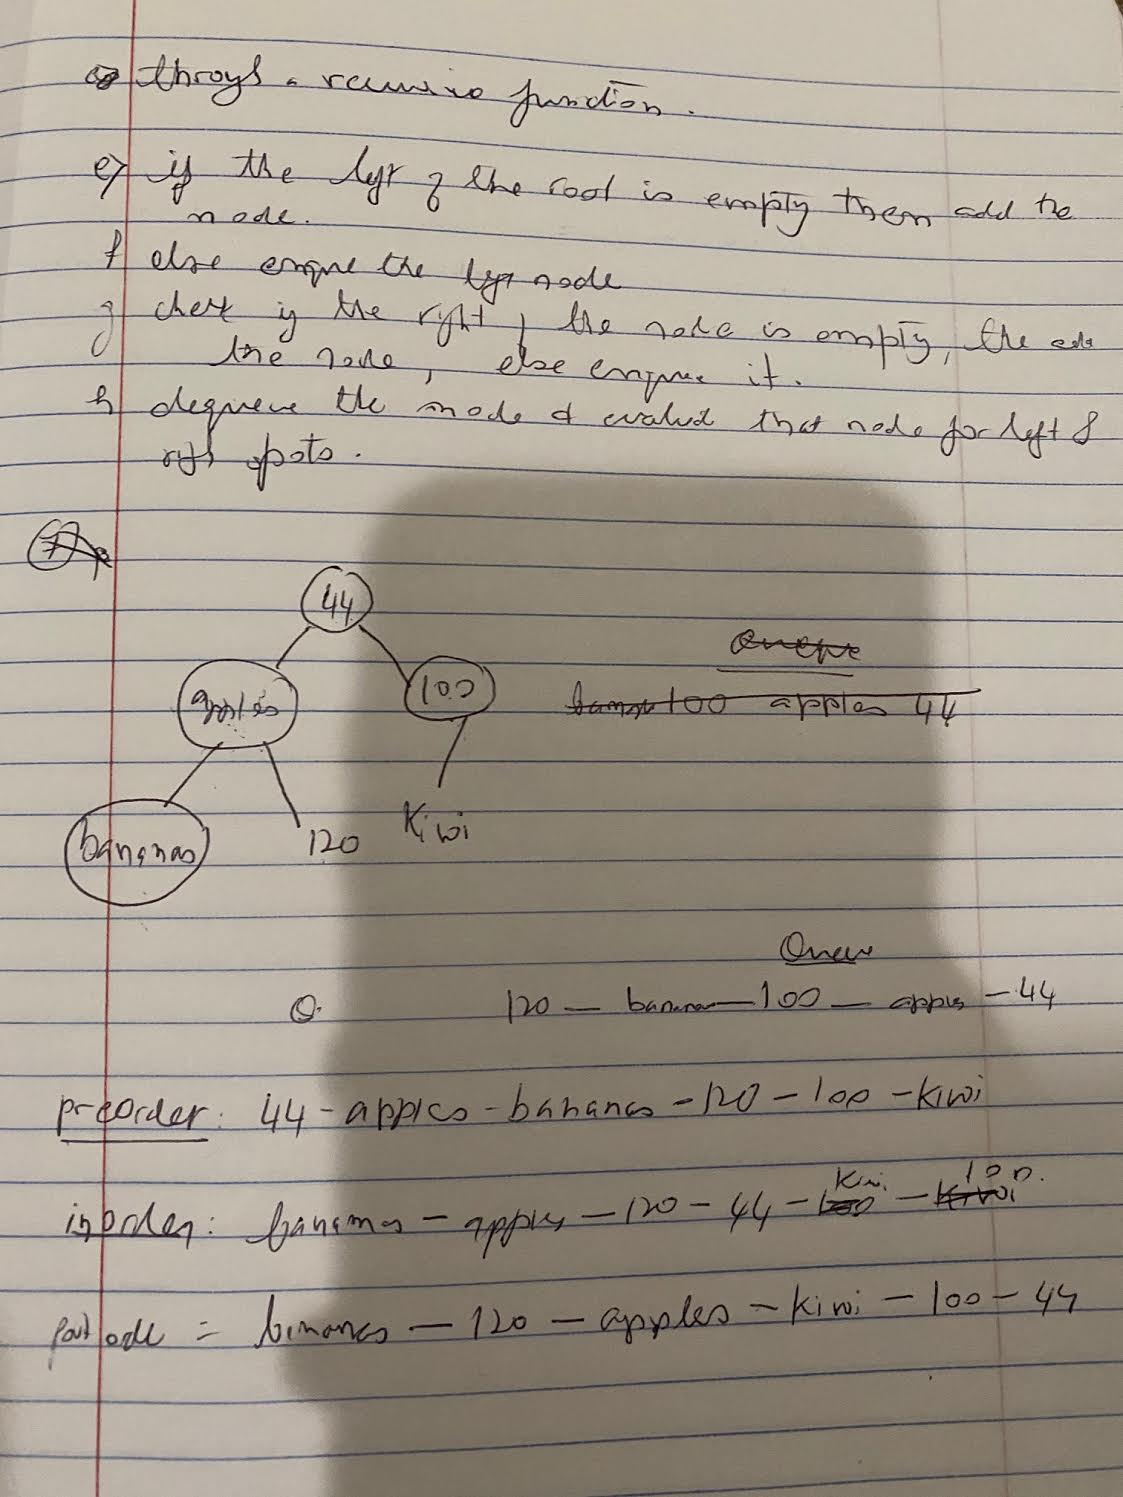 through a recursive function.
e) if the left of the root is empty then add the
node.
f else enqueue the left node
g check if the right, the node is empty, the add
the node, else enqueue it.
h dequeue the node & evaluate that node for left &
right spots.
44
Queue
apples
100
banana 100 apples 44
bananas
120
Kiwi
Queue
Q.
120 — banana — 100 — apples — 44
preorder: 44 - apples - bananas - 120 - 100 - kiwi
inorder: bananas - apples - 120 - 44 - kiwi - 100
post ode = bananas - 120 - apples - kiwi - 100 - 44